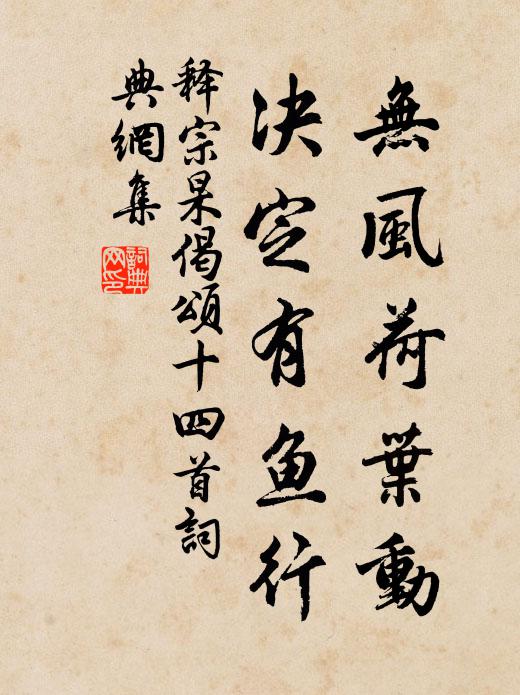 無風荷葉動
决定有鱼行
释宗杲偈頌十四首詞
典網集
詞典
网印